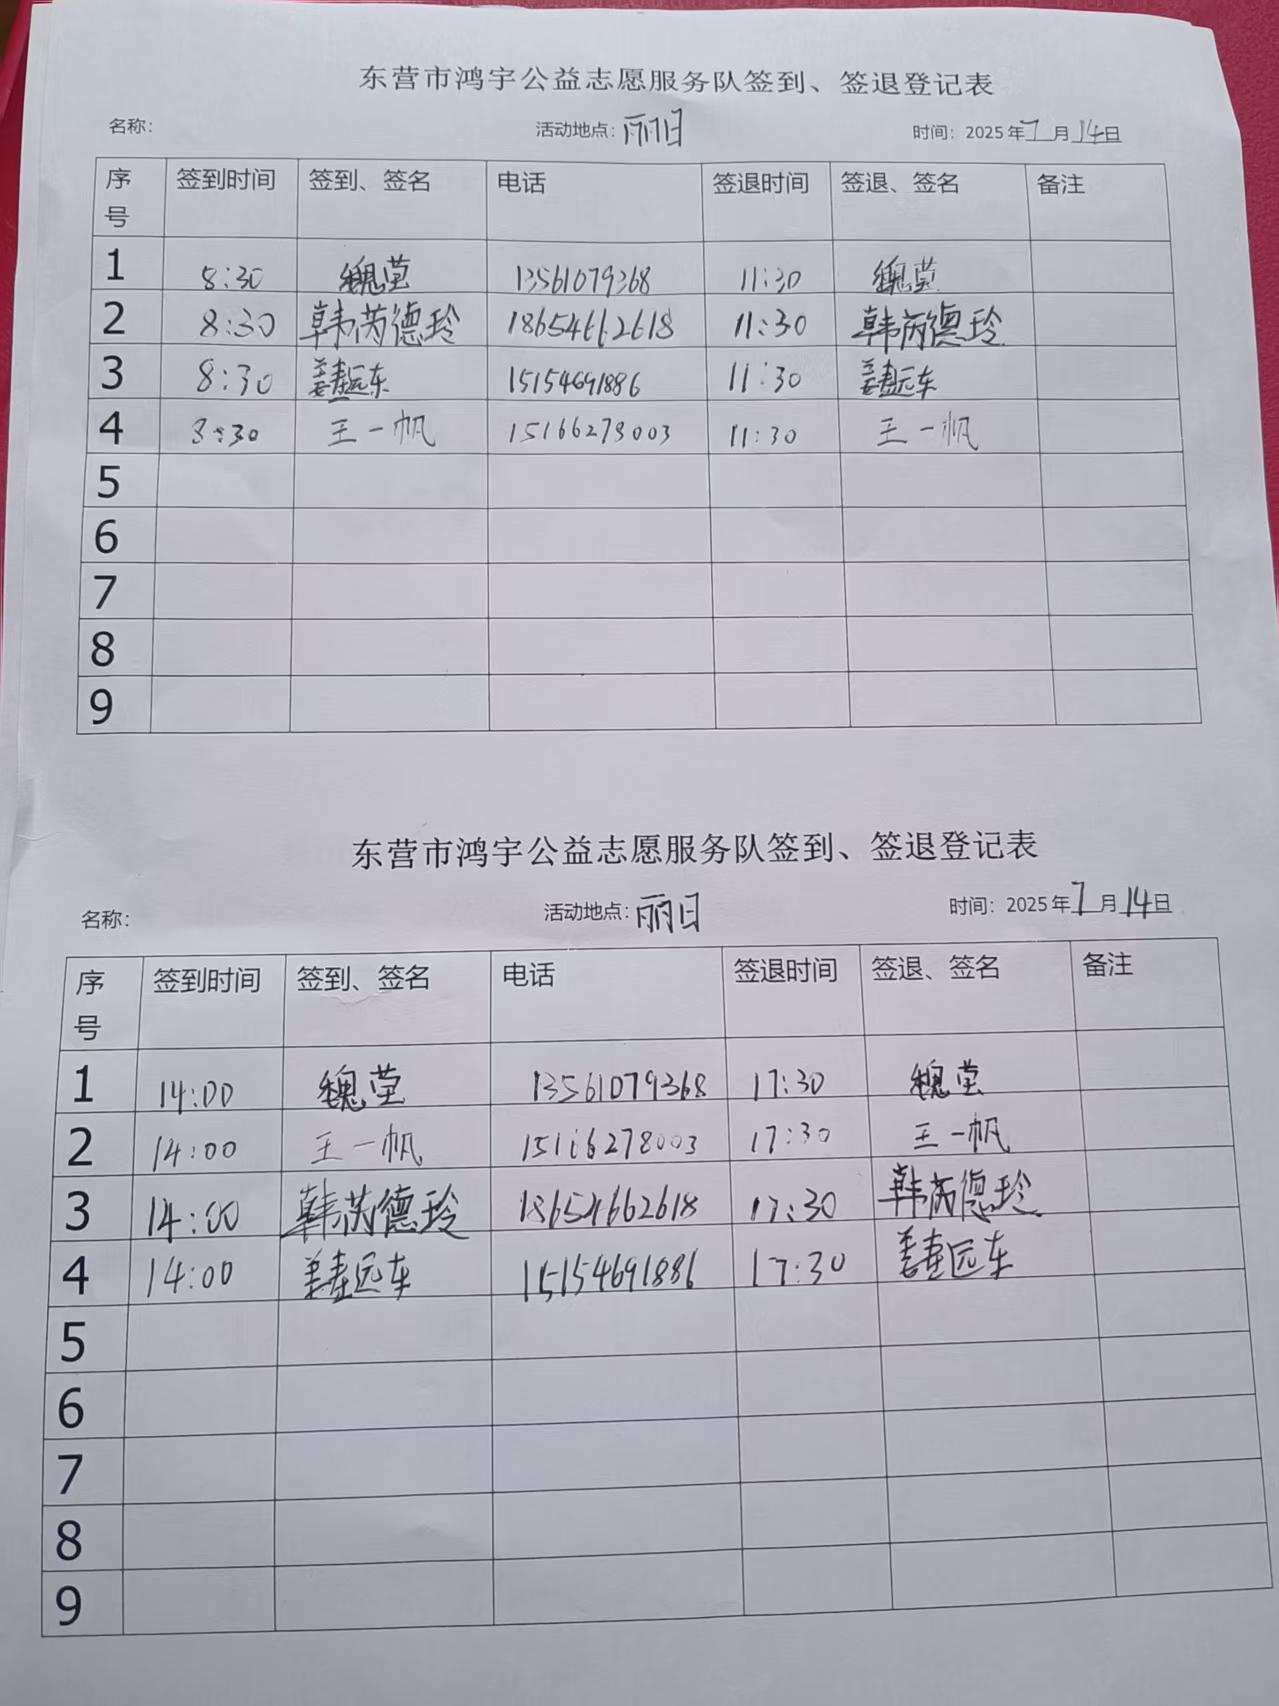 东营市鸿宇公益志愿服务队签到、签退登记表
名称: 活动地点: 丽日 时间: 2025年7月14日
序号 签到时间 签到、签名 电话 签退时间 签退、签名 备注
1 8:30 魏莹 13561079368 11:30 魏莹
2 8:30 韩芮德玲 18654662618 11:30 韩芮德玲
3 8:30 姜寿远东 15154691886 11:30 姜寿远东
4 8:30 王一帆 15166278003 11:30 王一帆
5
6
7
8
9
东营市鸿宇公益志愿服务队签到、签退登记表
名称: 活动地点: 丽日 时间: 2025年7月14日
序号 签到时间 签到、签名 电话 签退时间 签退、签名 备注
1 14:00 魏莹 13561079368 17:30 魏莹
2 14:00 王一帆 15166278003 17:30 王一帆
3 14:00 韩芮德玲 18654662618 17:30 韩芮德玲
4 14:00 姜寿远东 15154691886 17:30 姜寿远东
5
6
7
8
9